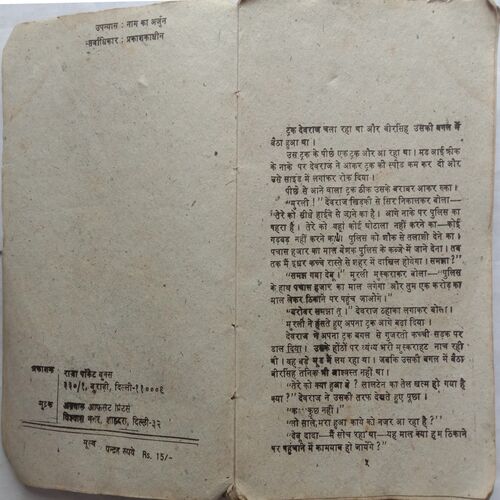 उपन्यास : नाम का अर्जुन
सर्वाधिकार : प्रकाशकाधीन
प्रकाशक : राजा पॉकेट बुक्स
३३०/१, बुराड़ी, दिल्ली-११०००६
मुद्रक : अग्रवाल आफसेट प्रिंटर्स
विश्वास नगर, शाहदरा, दिल्ली-३२
मूल्य
पन्द्रह रुपये Rs. 15/-
ट्रक देवराज चला रहा था और वीरसिंह उसकी बगल में
बैठा हुआ था ।
उस ट्रक के पीछे एक ट्रक और आ रहा था । मड आईलैंड
के नाके पर देवराज ने आकर ट्रक की स्पीड कम कर दी और
उसे साइड में लगाकर रोक दिया ।
पीछे से आने वाला ट्रक ठीक उसके बराबर आकर रुका ।
"मुरली !" देवराज खिड़की से सिर निकालकर बोला—
"तेरे को सीधे हाईवे से जाने का है । आगे नाके पर पुलिस का
पहरा है । तेरे को वहां कोई घोटाला नहीं करने का—कोई
गड़बड़ नहीं करने का । पुलिस को शौक से तलाशी देने का ।
पचास हजार का माल बेशक पुलिस के कब्जे में जाने देना । तब
तक मैं इधर कच्चे रास्ते से शहर में दाखिल होयेगा । समझा ?"
"समझ गया देबू ।" मुरली मुस्कराकर बोला—"पुलिस
के हाथ पचास हजार का माल लगेगा और तुम एक करोड़ का
माल लेकर ठिकाने पर पहुंच जाओगे ।"
"बरोबर समझा तू ।" देवराज ठहाका लगाकर बोला ।
मुरली ने हंसते हुए अपना ट्रक आगे बढ़ा दिया ।
देवराज ने अपना ट्रक बगल से गुजरती कच्ची सड़क पर
डाल दिया । उसके होंठों पर व्यंग्य भरी मुस्कराहट नाच रही
थी । वह बड़े मूड में लग रहा था । जबकि उसकी बगल में बैठा
वीरसिंह तनिक भी आश्वस्त नहीं था ।
"तेरे को क्या हुआ बे ? लालटेन का तेल खत्म हो गया है
क्या ?" देवराज ने उसकी तरफ देखते हुए पूछा ।
"क...कुछ नहीं ।"
"तो साले, मरा हुआ काये को नजर आ रहा है ?"
"देबू दादा—मैं सोच रहा था—यह माल क्या हम ठिकाने
पर पहुंचाने में कामयाब हो जायेंगे ?"
५